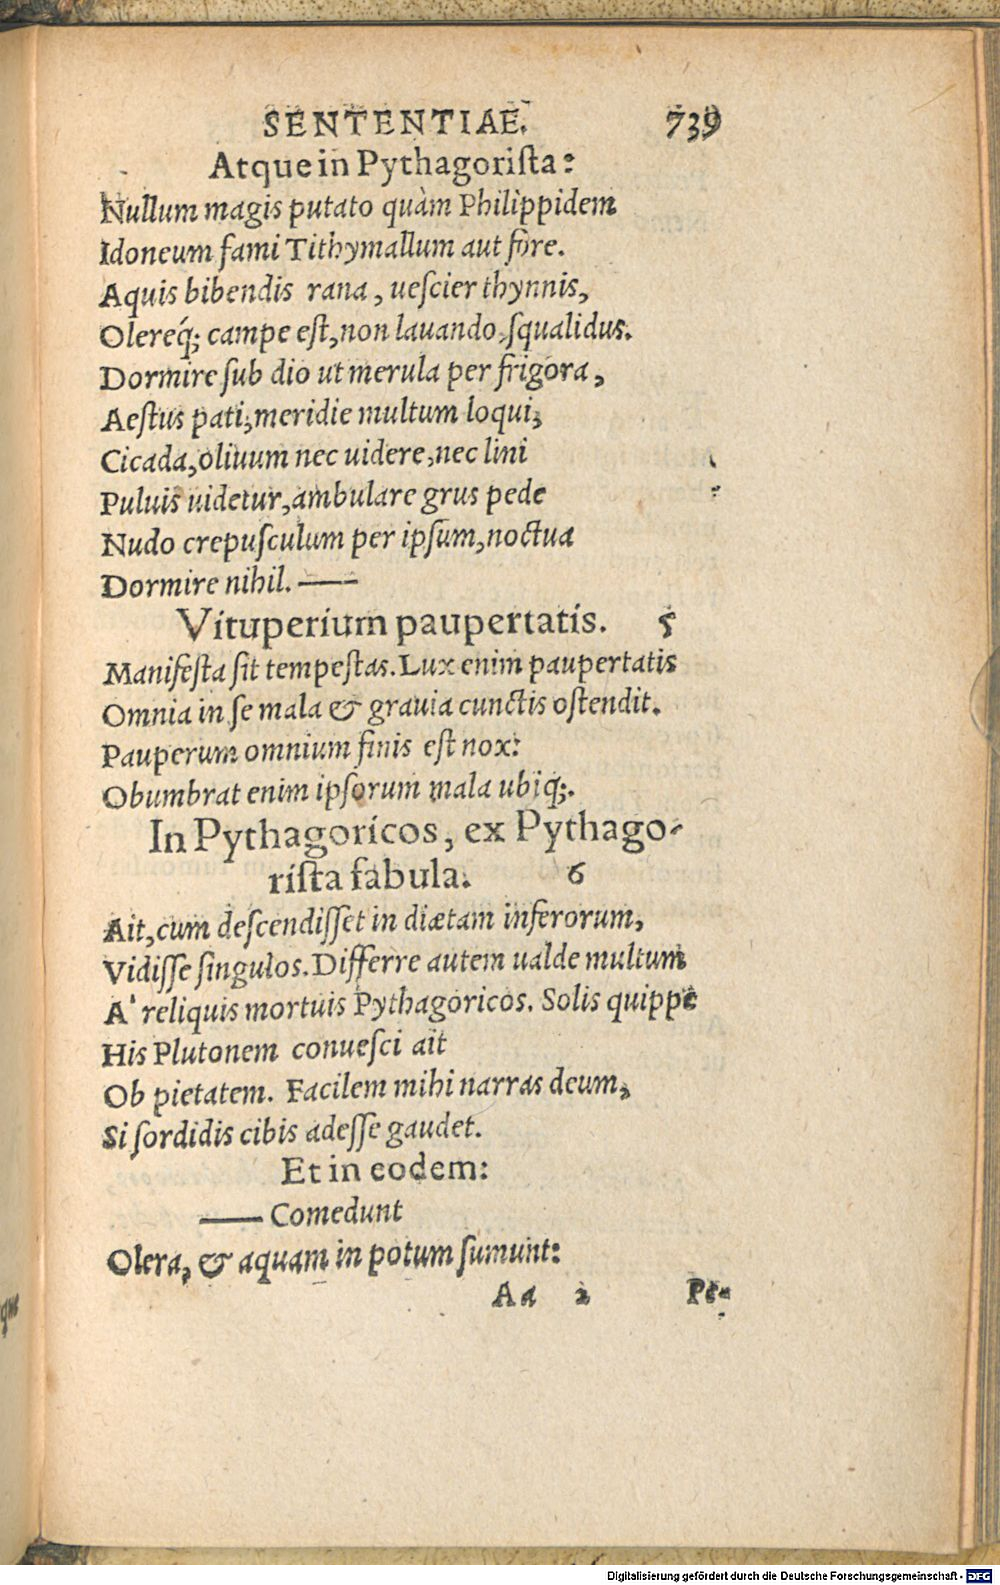 SENTENTIAE. 739
Atque in Pythagorista:
Nullum magis putato quàm Philippidem
Idoneum fami Tithymallum aut fore.
Aquis bibendis rana, uescier thynnis,
Olereq́; campe est, non lauando, squalidus.
Dormire sub dio ut merula per frigora,
Aestus pati, meridie multum loqui,
Cicada, oliuum nec uidere, nec lini
Puluis uidetur, ambulare grus pede
Nudo crepusculum per ipsum, noctua
Dormire nihil. ——
Vituperium paupertatis. 5
Manifesta sit tempestas. Lux enim paupertatis
Omnia in se mala & grauia cunctis ostendit.
Pauperum omnium finis est nox:
Obumbrat enim ipsorum mala ubiq;.
In Pythagoricos, ex Pythago-
rista fabula. 6
Ait, cum descendisset in diætam inferorum,
Vidisse singulos. Differre autem ualde multum
A' reliquis mortuis Pythagoricos. Solis quippe
His Plutonem conuesci ait
Ob pietatem. Facilem mihi narras deum,
Si sordidis cibis adesse gaudet.
Et in eodem:
—— Comedunt
Olera, & aquam in potum sumunt:
Aa 2 Pe-
que
Digitalisierung gefördert durch die Deutsche Forschungsgemeinschaft - DFG